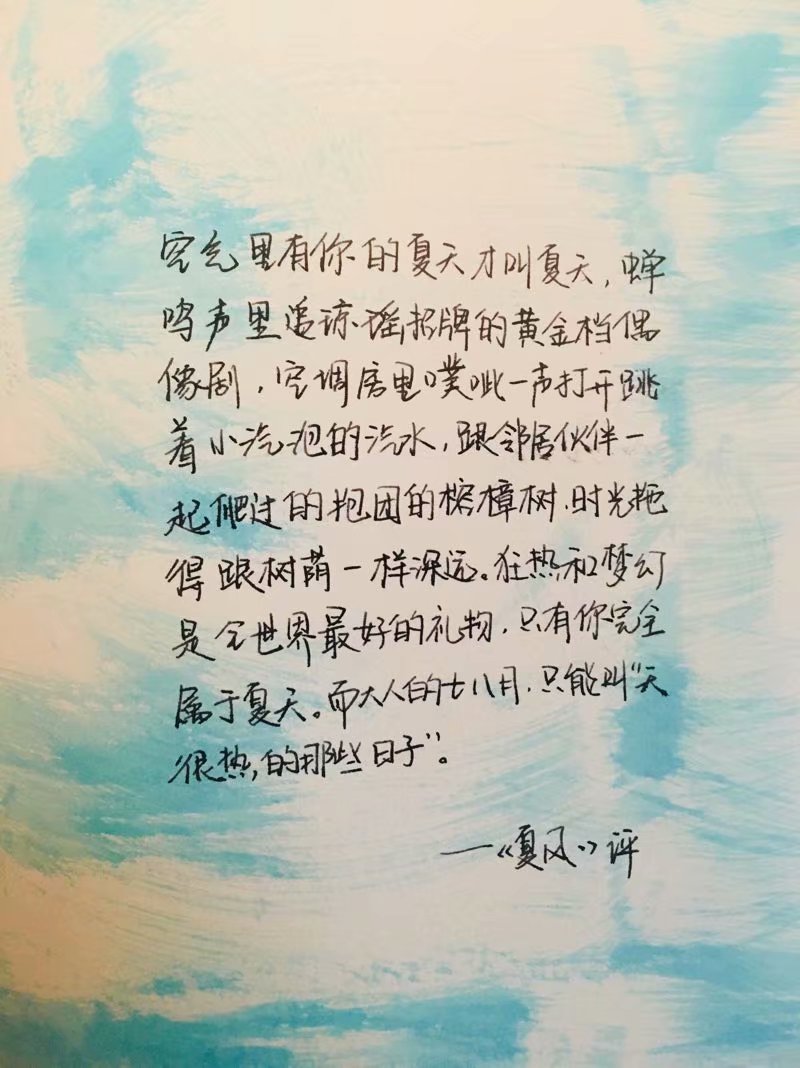 空气里有你的夏天才叫夏天，蝉
鸣声里追琼瑶招牌的黄金档偶
像剧，空调房里噗呲一声打开跳
着小汽泡的汽水，跟邻居伙伴一
起爬过的抱团的榕樟树，时光拖
得跟树荫一样深远。狂热和梦幻
是全世界最好的礼物，只有你完全
属于夏天。而大人的七八月，只能叫“天
很热，的那些日子”。
—《夏风》评